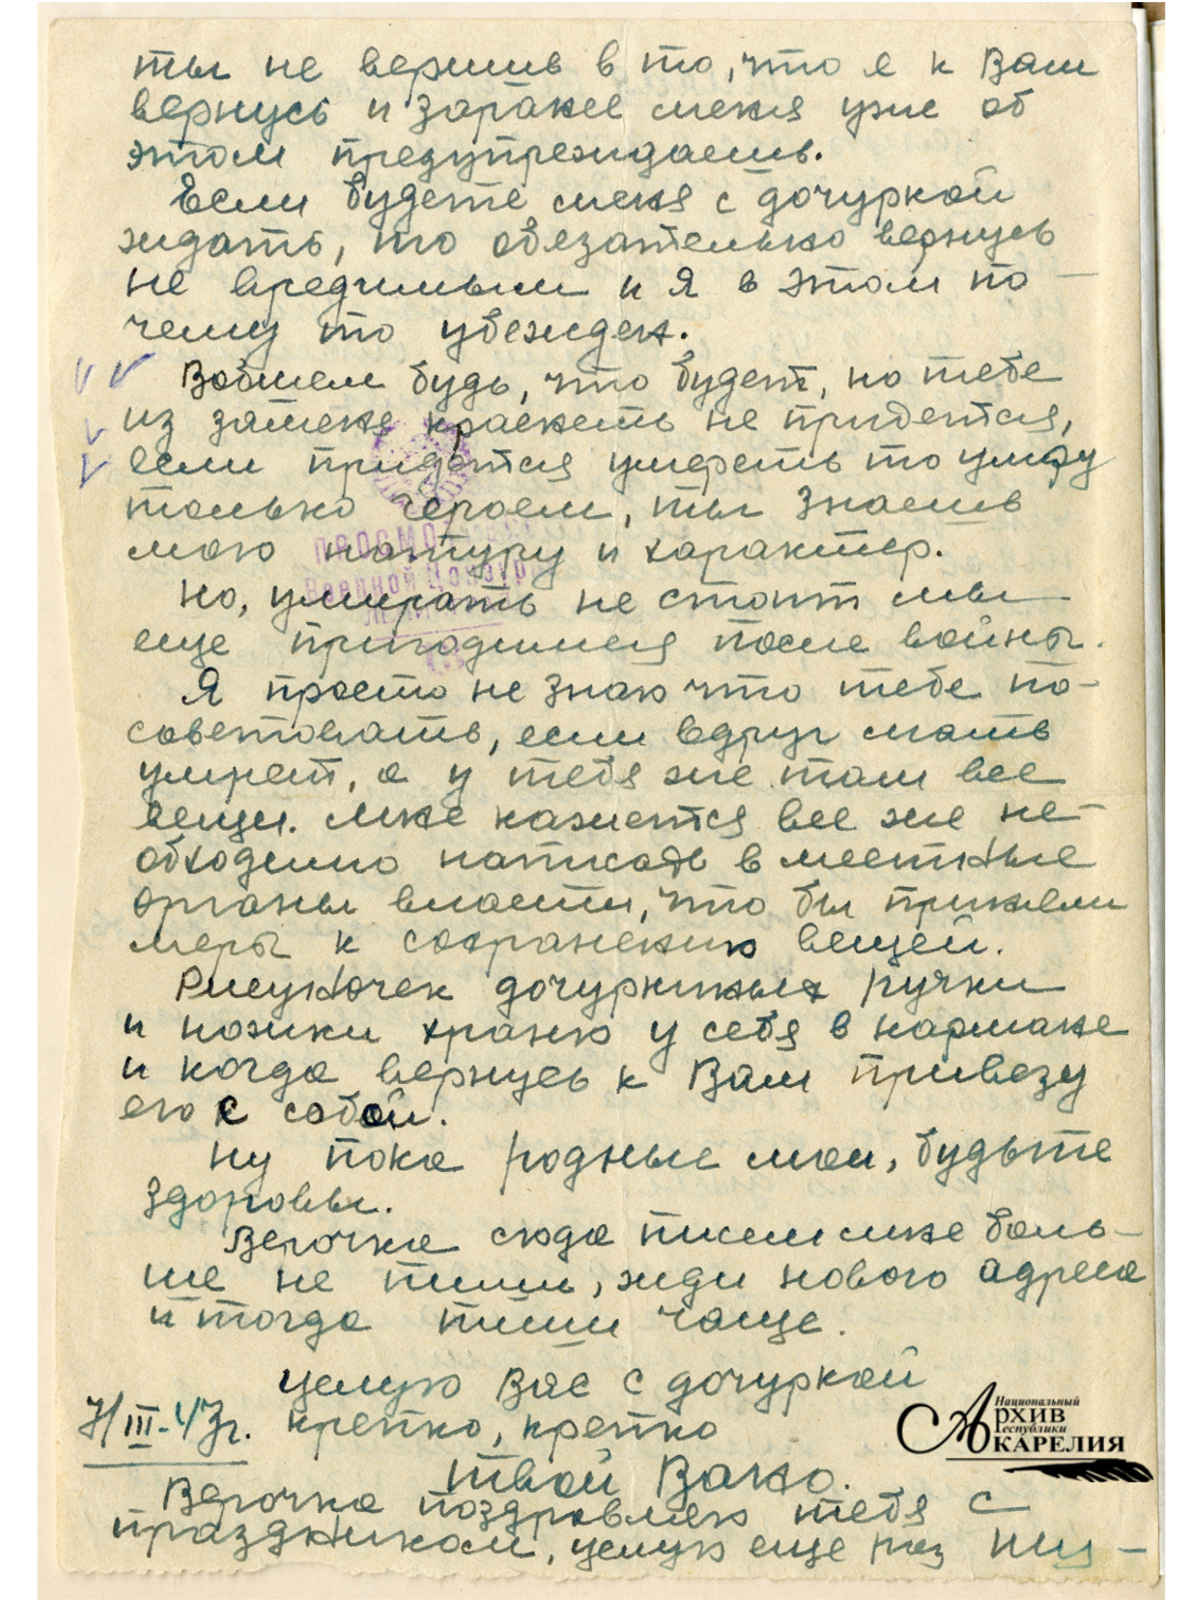 ты не веришь в то, что я к Вам
вернусь и заранее меня уже об
этом предупреждаешь.
Если будете меня с дочуркой
ждать, то обязательно вернусь
не вредимым и я в этом по-
чему то убежден.
Вобщем будь, что будет, но тебе
из за меня краснеть не придется,
если придется умереть то умру
только героем, ты знаешь
мою натуру и характер.
Просмотрено
Военной Цензурой
Но, умирать не стоит мы
еще пригодимся после войны.
Я просто не знаю что тебе по-
советовать, если вдруг мать
умрет, а у тебя же там все
вещи. Мне кажется все же не-
обходимо написать в местные
органы власти, что бы приняли
меры к сохранению вещей.
Рисуночек дочуркиных ручки
и ножки храню у себя в кармане
и когда вернусь к Вам привезу
его с собой.
Ну пока родные мои, будьте
здоровы.
Верочка сюда писем мне боль-
ше не пиши, жди нового адреса
и тогда пиши чаще.
Целую Вас с дочуркой
7/III-43г. крепко, крепко
твой Вако.
Верочка поздравляю тебя с
праздником, целую еще раз
Национальный
Архив
Республики
Карелия